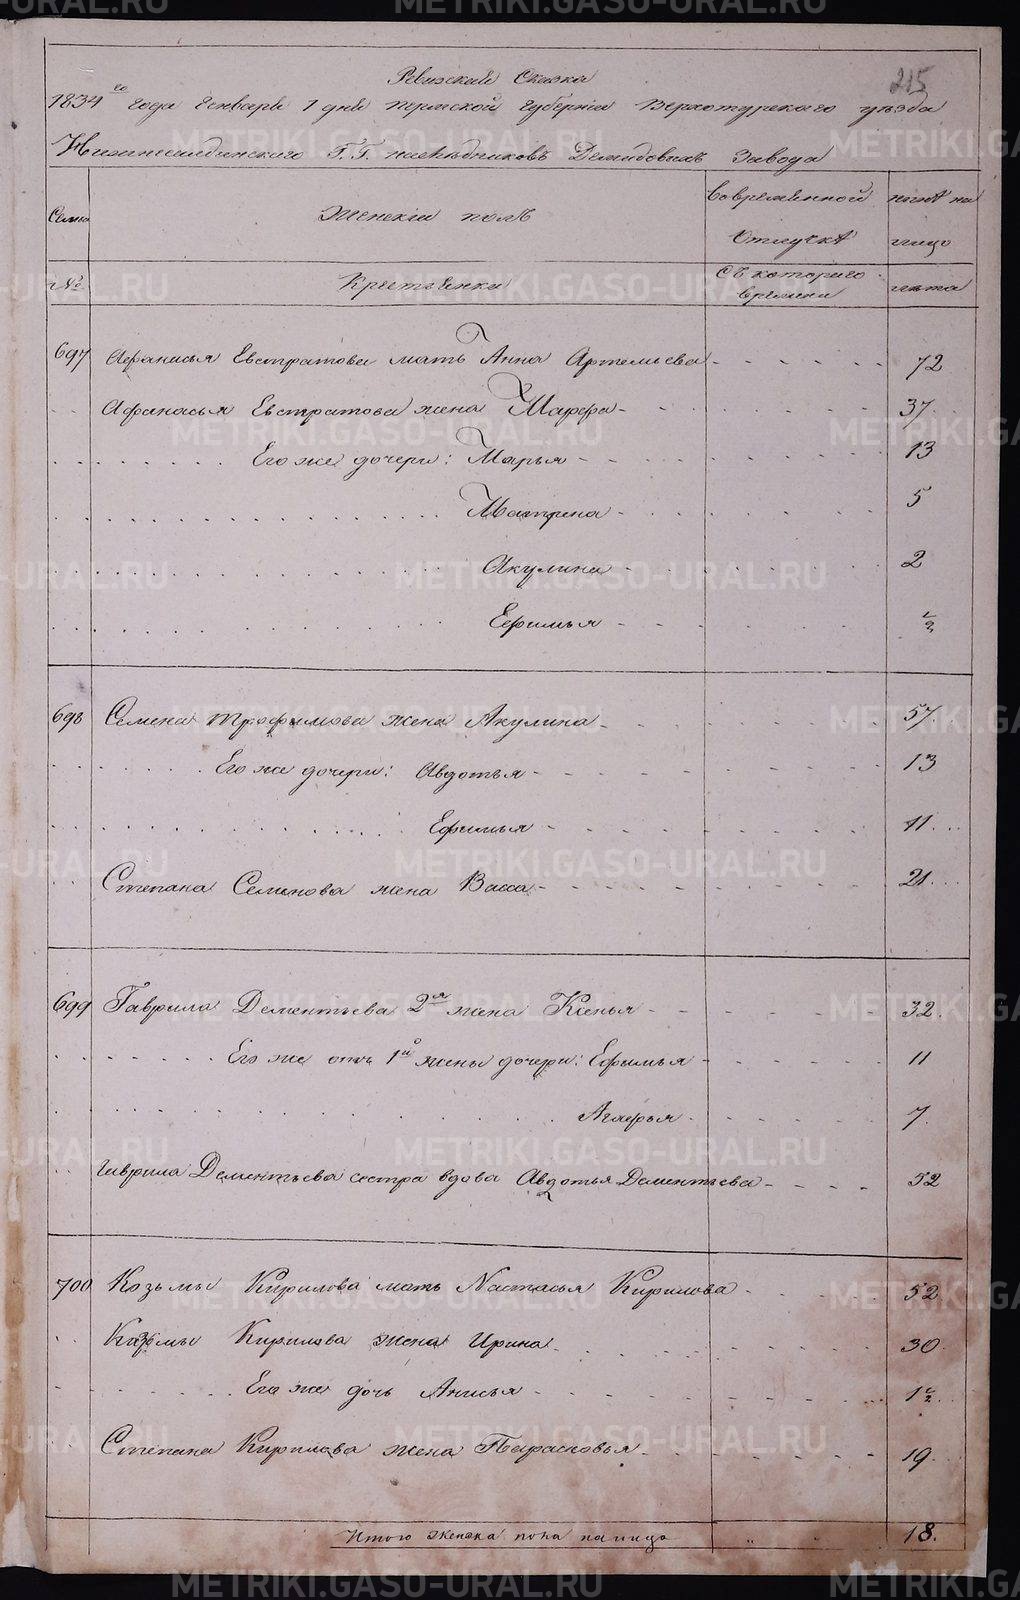 215
Ревизская Сказка
1834го года Генваря 1 дня Пермской Губернiи Верхотурскаго уезда
Нижнесалдинскаго Г.Г. наследниковъ Демидовыхъ Завода
Семьи Женскiй полъ Во временной отлучкѣ ныне на лицо
№ Крестьянки Съ котораго времени лѣта
697 Афанасья Евстратова мать Анна Артемьева 72
Афанасья Евстратова жена Марфа 37
Его же дочери: Марья 13
Матрена 5
Акулина 2
Ефимья 1/2
698 Семена Трофимова жена Акулина 57
Его же дочери: Авдотья 13
Ефимья 11
Степана Семенова жена Васса 21
699 Гаврила Дементьева 2я жена Ксенья 32
Его же отъ 1й жены дочери: Ефимья 11
Агафья 7
Гаврила Дементьева сестра вдова Авдотья Дементьева 52
700 Козьмы Кирилова мать Настасья Кирилова 52
Козьмы Кирилова жена Ирина 30
Его же дочь Анисья 1 1/2
Степана Кирилова жена Парасковья 19
Итого женска пола на лицо 18.
METRIKI.GASO-URAL.RU